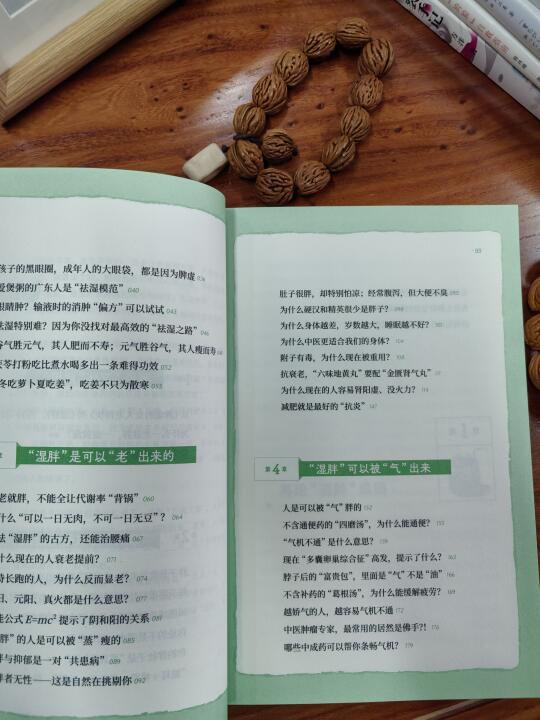 孩子的黑眼圈，成年人的大眼袋，都是因为脾虚 036
爱煲粥的广东人是“祛湿模范” 040
眼睛肿？输液时的消肿“偏方”可以试试 043
祛湿特别难？因为你没找对最高效的“祛湿之路” 046
谷气胜元气，其人肥而不寿；元气胜谷气，其人瘦而寿
茯苓打粉吃比煮水喝多出一条难得功效 052
冬吃萝卜夏吃姜”，吃姜不只为散寒 055
章
“湿胖”是可以“老”出来的
老就胖，不能全让代谢率“背锅” 060
什么“可以一日无肉，不可一日无豆”？ 064
祛“湿胖”的古方，还能治腰痛 067
什么现在的人衰老提前？ 071
持长跑的人，为什么反而显老？ 074
阳、元阳、真火都是什么意思？ 077
能公式 E=mc² 提示了阴和阳的关系
胖”的人是可以被“蒸”瘦的 085
胖与抑郁是一对“共患病” 089
胖者无性——这是自然在挑剔你 092
肚子很胖，却特别怕凉；经常腹泻，但大便不臭
为什么硬汉和精英很少是胖子？
为什么身体越差，岁数越大，睡眠越不好？
为什么中医更适合我们的身体？
附子有毒，为什么现在被重用？
抗衰老，“六味地黄丸”要配“金匮肾气丸”
为什么现在的人容易肾阳虚、没火力？
减肥就是最好的“抗炎” 147
第4章
“湿胖”可以被“气”出来
人是可以被“气”胖的 152
不含通便药的“四磨汤”，为什么能通便？ 155
“气机不通”是什么意思？
现在“多囊卵巢综合征”高发，提示了什么？
脖子后的“富贵包”，里面是“气”不是“油” 166
不含补药的“葛根汤”，为什么能缓解疲劳？
越娇气的人，越容易气机不通 172
中医肿瘤专家，最常用的居然是佛手?! 176
哪些中成药可以帮你条畅气机？ 179